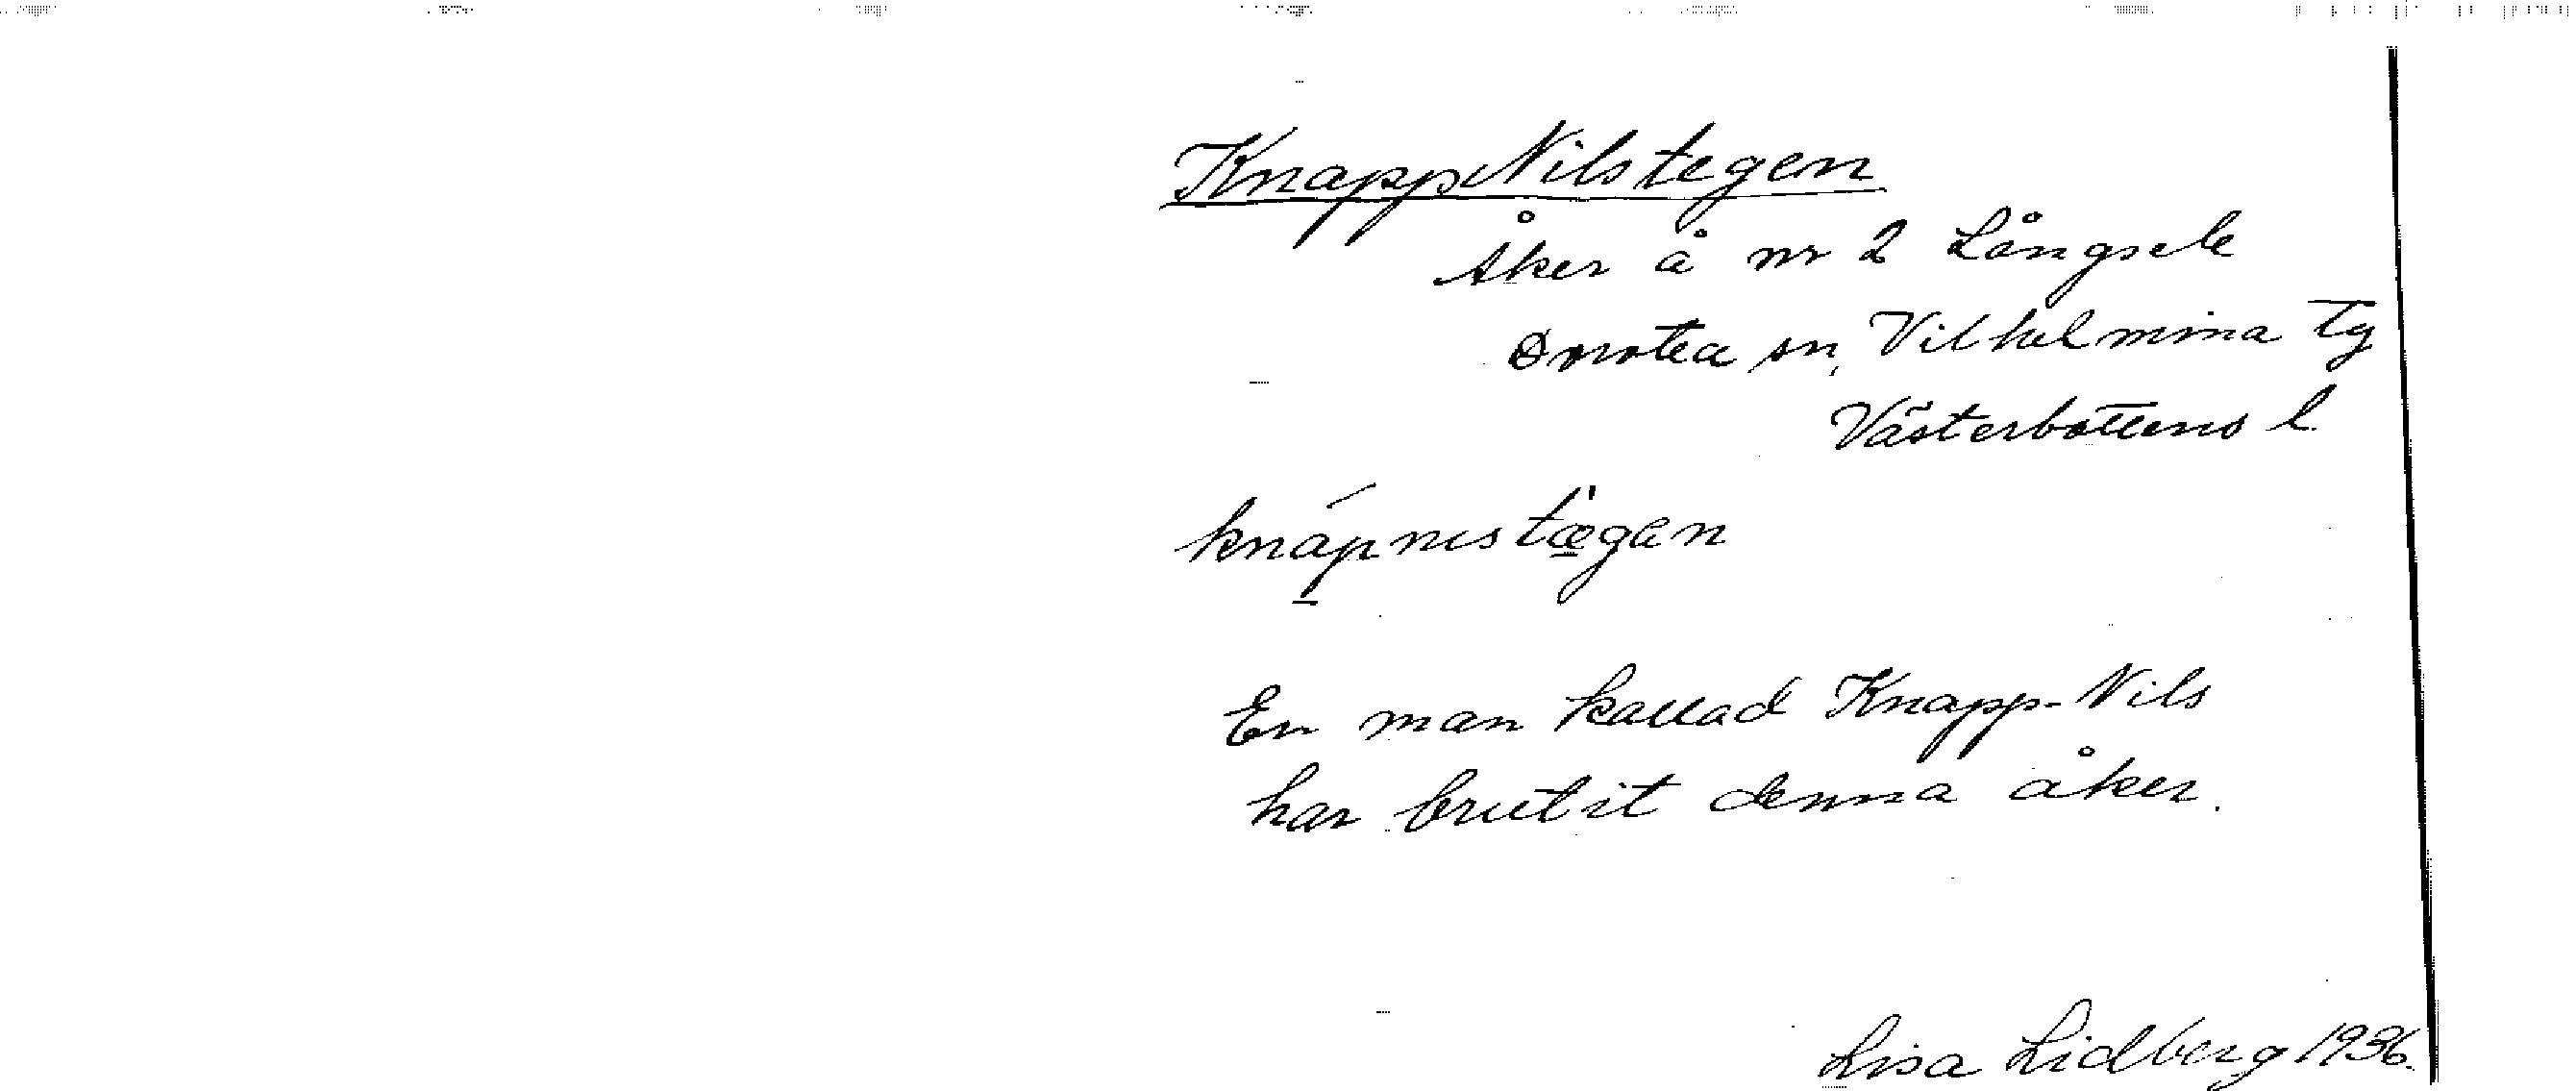 KnappNilstegen
Åker å nr 2 Långsele
Dorotea sn, Vilhelmina Tg
Västerbottens l
En man kallad Knapp-Nils
har brutit denna åker.
Lisa Lidberg 1936.